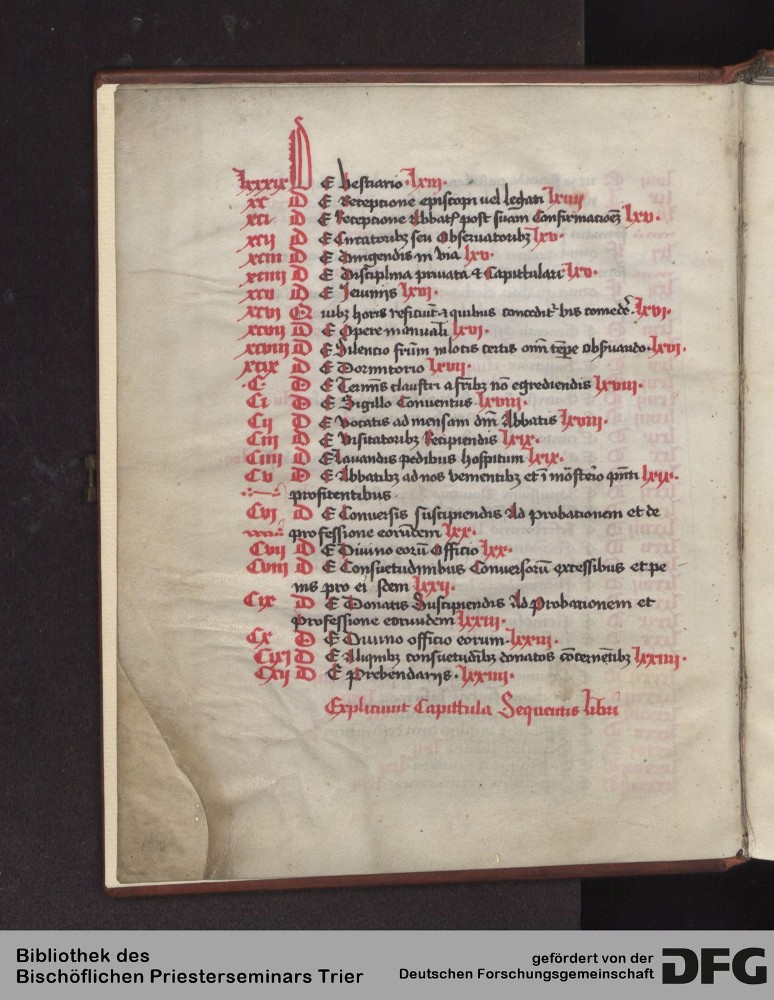 lxxxix DE vestiario · lxiii ·
xc DE Receptione episcopi vel legati lxiiii
xci DE Receptione Abbatꝭ post suam Confirmationē lxv ·
xcij DE Circatoribꝫ seu Obseruatoribꝫ lxv ·
xciii DE Dirigendis in via lxv ·
xciiii DE Disciplina priuata & Capittulari lxv ·
xcv DE Ieiunijs lxvi ·
xcvi Quibꝫ horis reficiūt · & quibus concedit᷑ bis comedẽ · lxvi ·
xcvij DE Opere manuali lxvi ·
xcviii DE Silencio fr̄um in locis certis om̄i tēpe obẜuando · lxvi ·
xcix DE Dormitorio lxvii ·
· C · DE Terminis claustri a fr̄ibꝫ nō egrediendis lxviii ·
Ci DE Sigillo Conuentus lxviii ·
Cij DE Vocatis ad mensam dn̄i Abbatis lxviii ·
Ciij DE Visitatoribꝫ Recipiendis lxix ·
Ciiij DE lauandis pedibus hospitum lxix ·
Cv DE Abbatibꝫ ad nos venientibꝫ et ī mōster̄io qn̄ti lxix ·
profitentibus ·
Cvi DE Conuersis suscipiendis Ad probationem et de
professione eorūdem lxx ·
Cvij DE Diuino eorū Officio lxx ·
Cviii DE Consuetudinibus Conuersorū excessibus et pe
nis pro eisdem lxxij ·
Cix DE Donatis Suscipiendis Ad Probationem et
professione eorundem lxxiii ·
Cx DE Diuino officio eorum · lxxiii ·
Cxi DE Aliquibꝫ consuetudībꝫ donatos cōcernētibꝫ lxxiiii ·
Cxij DE Prebendarijs · lxxiiii ·
Expliciunt Capittula Sequentis libri
Bibliothek des
Bischöflichen Priesterseminars Trier
gefördert von der
Deutschen Forschungsgemeinschaft DFG